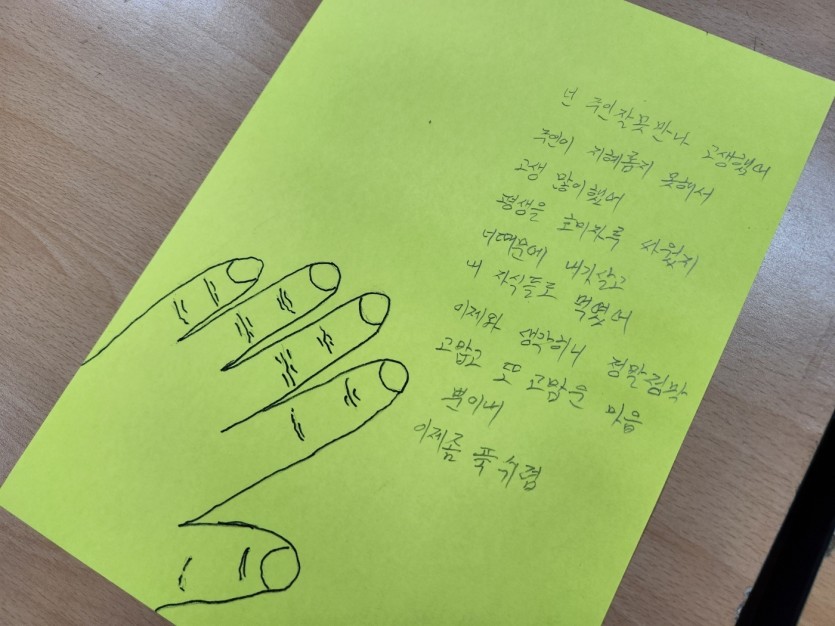 넌 주인잘못 만나 고생했어
주인이 지혜롭지 못해서
고생 많이했어
평생을 호미자루 싸웠지
너때문에 내가살고
내 자식들도 먹였어
이제와 생각하니 정말정말
고맙고 또 고맙은 마음
뿐이네
이제좀 푹 쉬렴